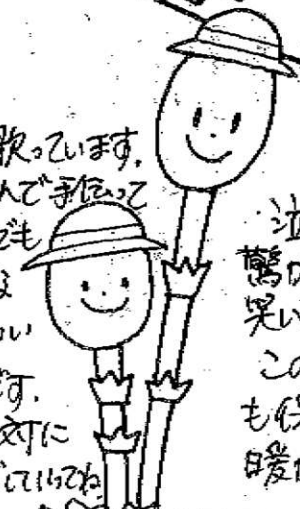 歌っています。
んで手伝って
でも
な
い
です。
対に
していってね
泣
驚
笑い
この
も
暖